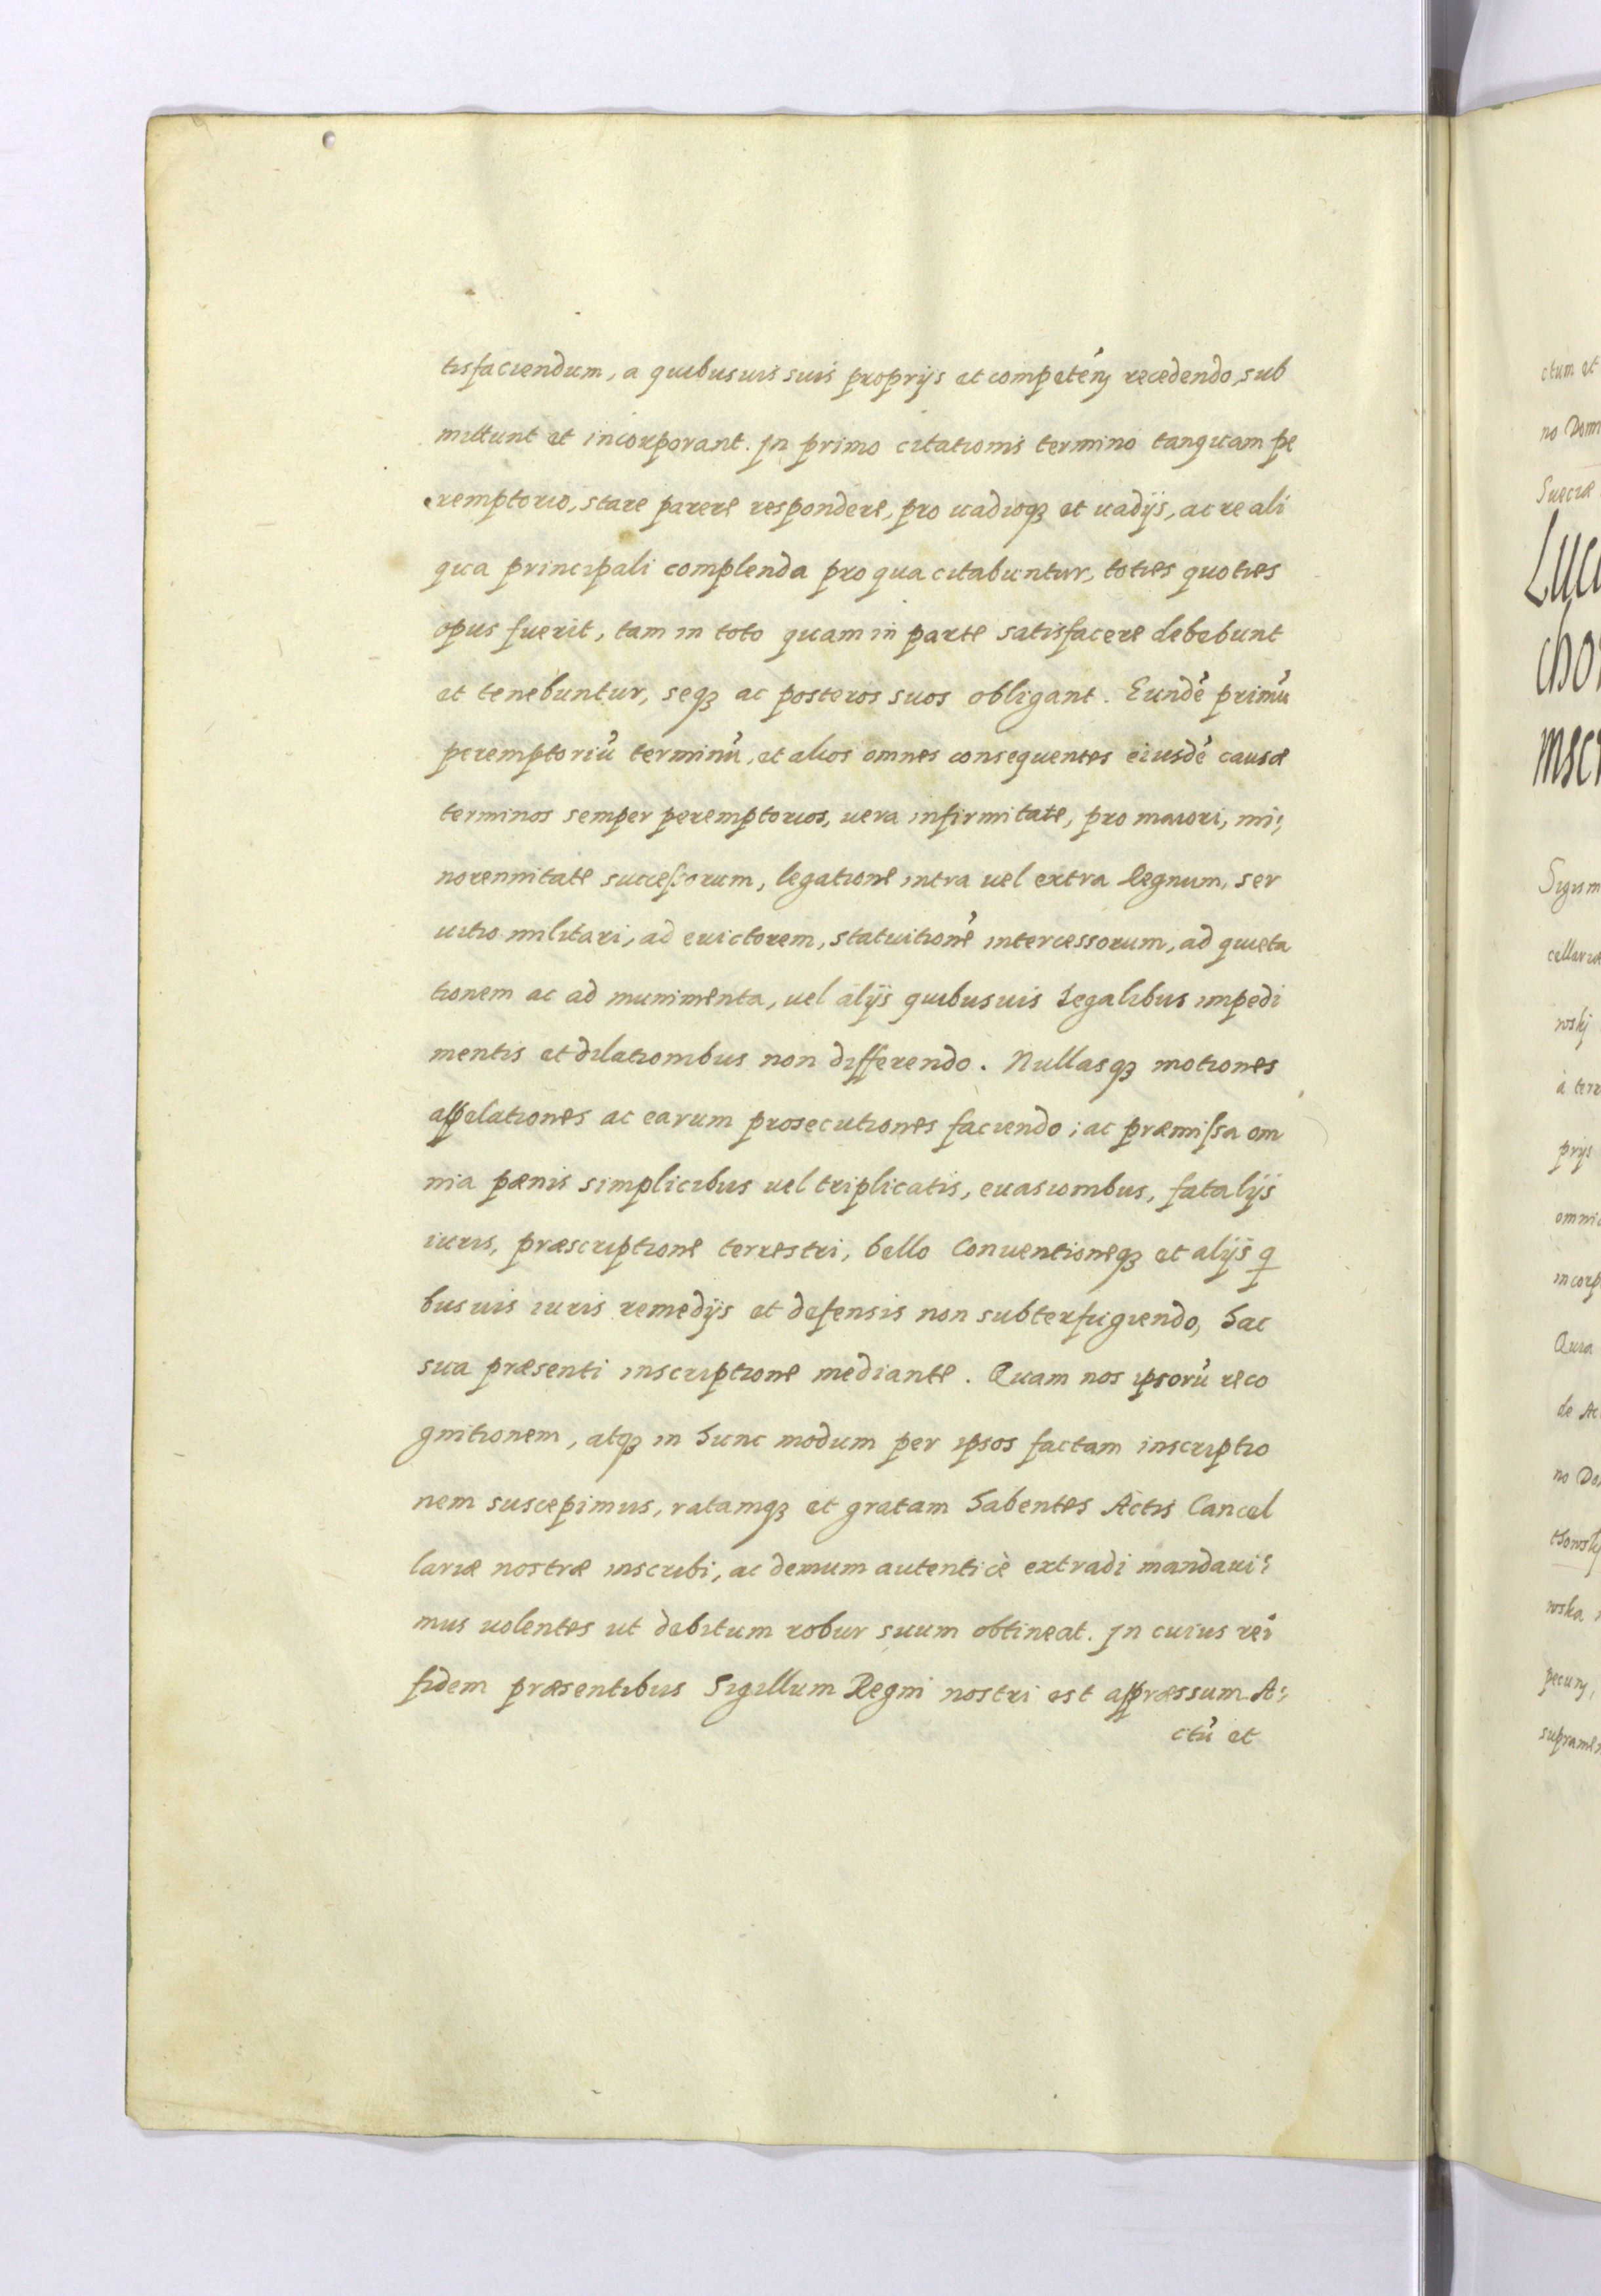 tisfaciendum, a quibusuis suis proprijs et competēn̄ recedendo, sub
mittunt et incorporant. In primo citationis termino tanquam pe
remptorio, stare parere respondere, pro uadioqꝫ et uadijs, ac re ali
qua principali complenda pro qua citabuntur, toties quoties
opus fuerit, tam in toto quam in parte satisfacere debebunt
et tenebuntur, seqꝫ ac posteros suos obligant. Eundē primū
peremptoriū terminū, et alios omnes consequentes eiusdē causæ
terminos semper peremptorios, uera infirmitate, pro maiori, mi:
norennitate successorum, legatione intra uel extra Regnum, ser
uitio militari, ad euictorem, statuitionē intercessorum, ad quieta
tionem ac ad munimenta, uel alijs quibusuis legalibus impedi
mentis et dilationibus non differendo. Nullasqꝫ motiones
appelationes ac earum prosecutiones faciendo; ac præmissa om
nia pænis simplicibus uel triplicatis, euasionibus, fatalijs
iuris, præscriptione terrestri, bello Conuentioneqꝫ et alijs q̄
busuis iuris remedijs et defensis non subterfugiendo, hac
sua præsenti inscriptione mediante. Quam nos ipsorū reco
gnitionem, atqꝫ in hunc modum per ipsos factam inscriptio
nem suscepimus, ratamqꝫ et gratam habentes Actis Cancel
lariæ nostræ inscribi, ac demum autenticè extradi mandaui:
mus uolentes ut debitum robur suum obtineat. In cuius rei
fidem præsentibus Sigillum Regni nostri est appræssum. A:
ctū et
ctum et
no Dom
Sueciæ
Luc
cho
mscr
Sigism
cellariæ
wskj
à terr
prijs
omni
incorp
Quia
de Ac
no Do
wska
pecun̄,